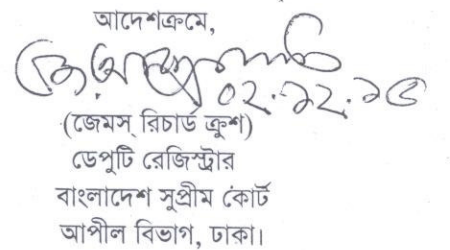 আদেশক্রমে,
০২.১২.১৫
(জেমস্ রিচার্ড ক্রুশ)
ডেপুটি রেজিস্ট্রার
বাংলাদেশ সুপ্রীম কোর্ট
আপীল বিভাগ, ঢাকা।